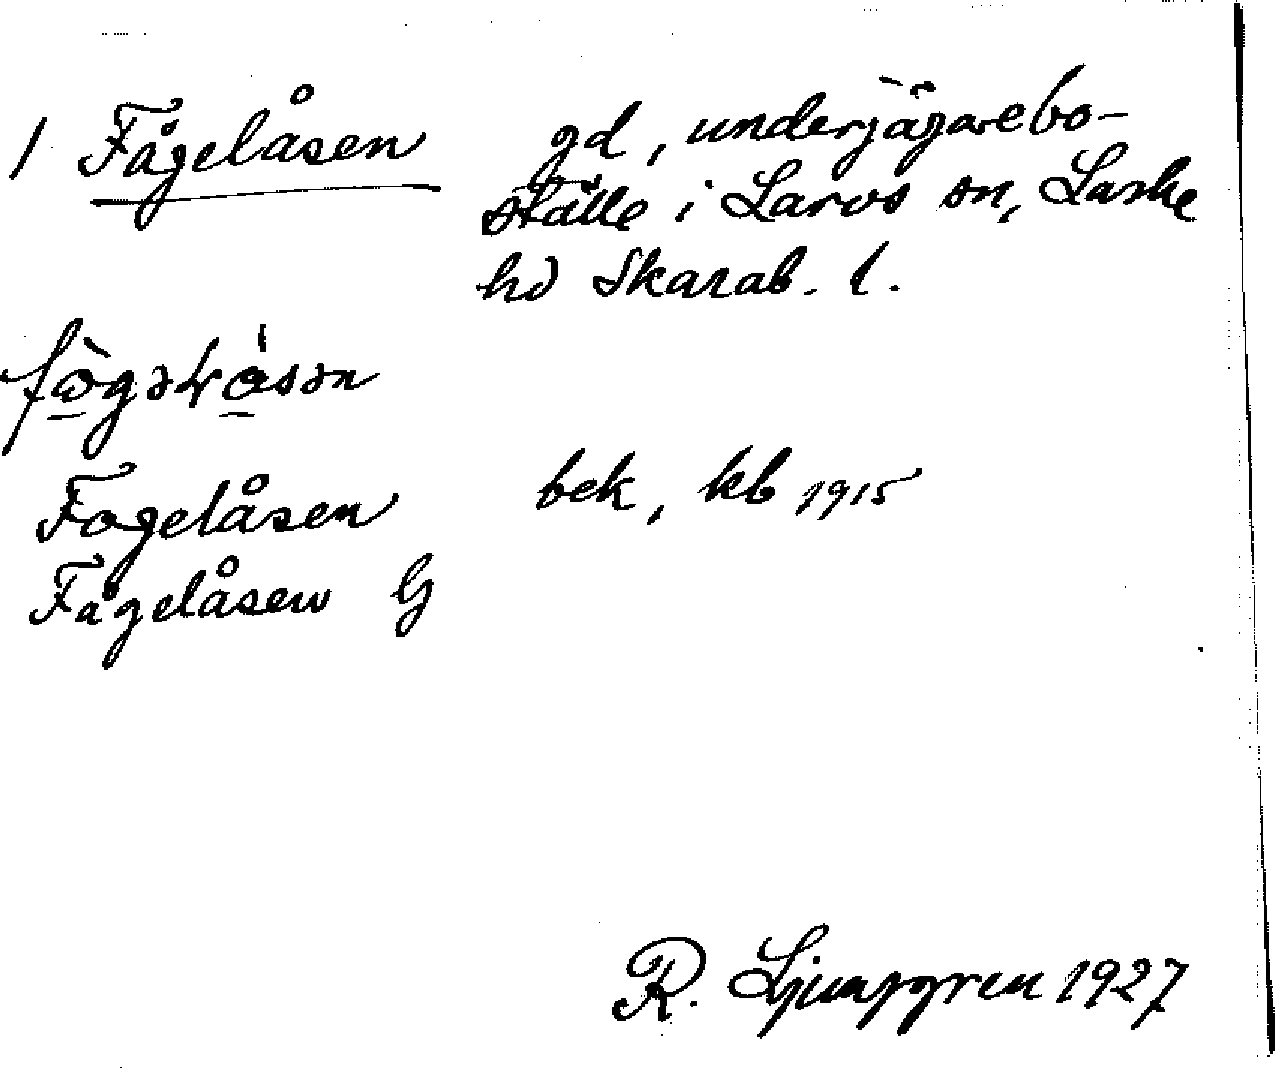 1 Fågelåsen gd, underjägarebo-
ställe i Larvs sn, Laske
hd Skarab. l.
Fogelåsen bek, kb 1915
Fågelåsen G
R. Ljunggren 1927